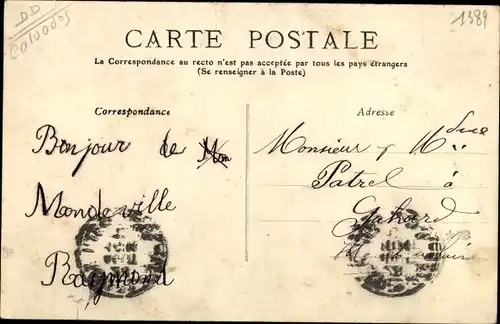 DD
Calvados
1384
CARTE POSTALE
La Correspondance au recto n'est pas acceptée par tous les pays étrangers
(Se renseigner à la Poste)
Correspondance
Bonjour de
Mandeville
Raymond
Adresse
Monsieur
Patrel à
Gahard